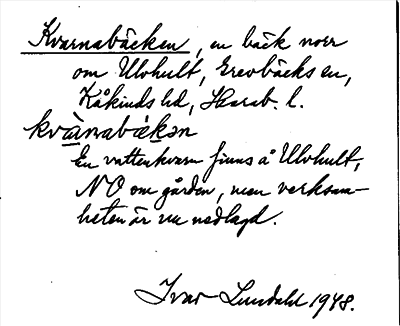 Kvarnabäcken, en bäck norr
om Ulvhult, Grevbäcks sn,
Kåkinds hd, Skarab. l.
kvànabäkən
En vattenkvarn finns å Ulvhult,
NO om gården, men verksam-
heten är nu nedlagd.
Ivar Lundahl 1948.